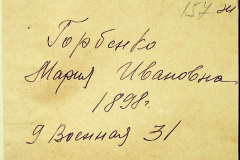 157 ж
Горбенко
Мария Ивановна
1898г.
9 Военная 31